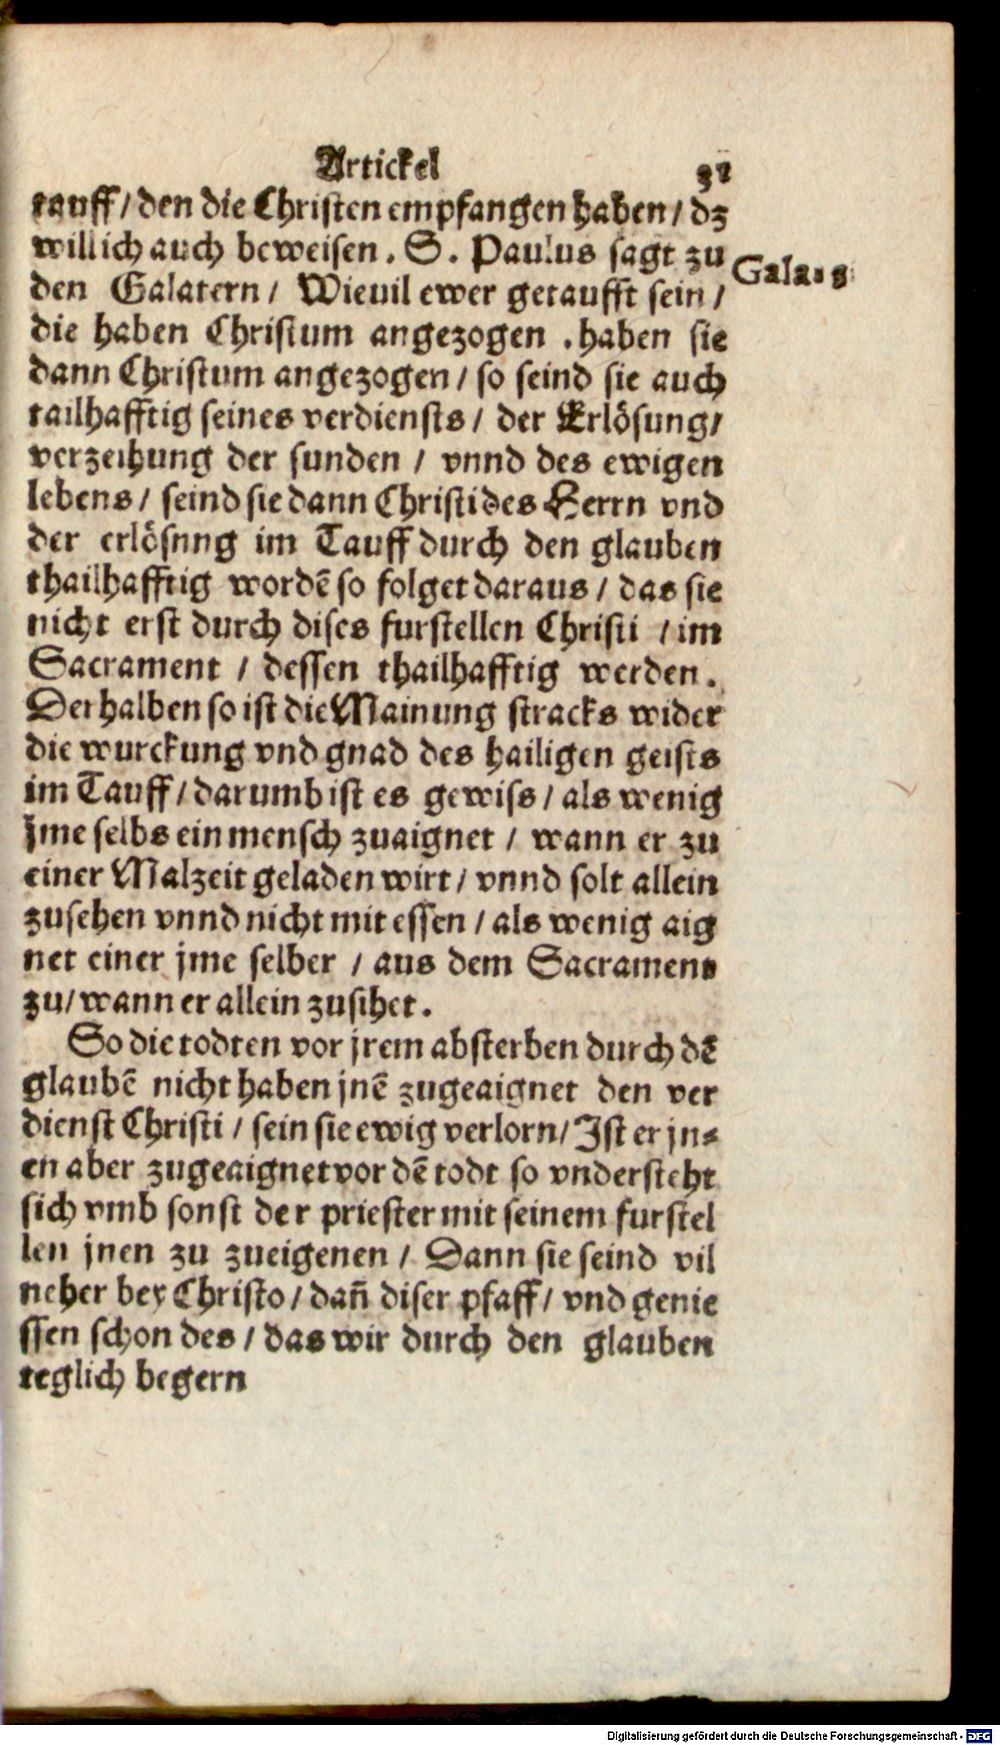 Artickel 32
tauff / den die Christen empfangen haben / dz
will ich auch beweisen. S. Paulus sagt zu
Gala. 3
den Galatern / Wieuil ewer getaufft sein /
die haben Christum angezogen . haben sie
dann Christum angezogen / so seind sie auch
tailhafftig seines verdiensts / der Erlösung /
verzeihung der sunden / vnnd des ewigen
lebens / seind sie dann Christi des Herrn vnd
der erlösnng im Tauff durch den glauben
thailhafftig wordē so folget daraus / das sie
nicht erst durch dises furstellen Christi / im
Sacrament / dessen thailhafftig werden.
Derhalben so ist die Mainung stracks wider
die wurckung vnd gnad des hailigen geists
im Tauff / darumb ist es gewiss / als wenig
jme selbs ein mensch zuaignet / wann er zu
einer Malzeit geladen wirt / vnnd solt allein
zusehen vnnd nicht mit essen / als wenig aig
net einer jme selber / aus dem Sacramens
zu / wann er allein zusihet.
So die todten vor jrem absterben durch dē
glaubē nicht haben jnē zugeaignet den ver
dienst Christi / sein sie ewig verlorn / Jst er jn⸗
en aber zugeaignet vor dē todt so vndersteht
sich vmb sonst der priester mit seinem furstel
len jnen zu zueigenen / Dann sie seind vil
neher bey Christo / dañ diser pfaff / vnd genie
ssen schon des / das wir durch den glauben
teglich begern
Digitalisierung gefördert durch die Deutsche Forschungsgemeinschaft - DFG